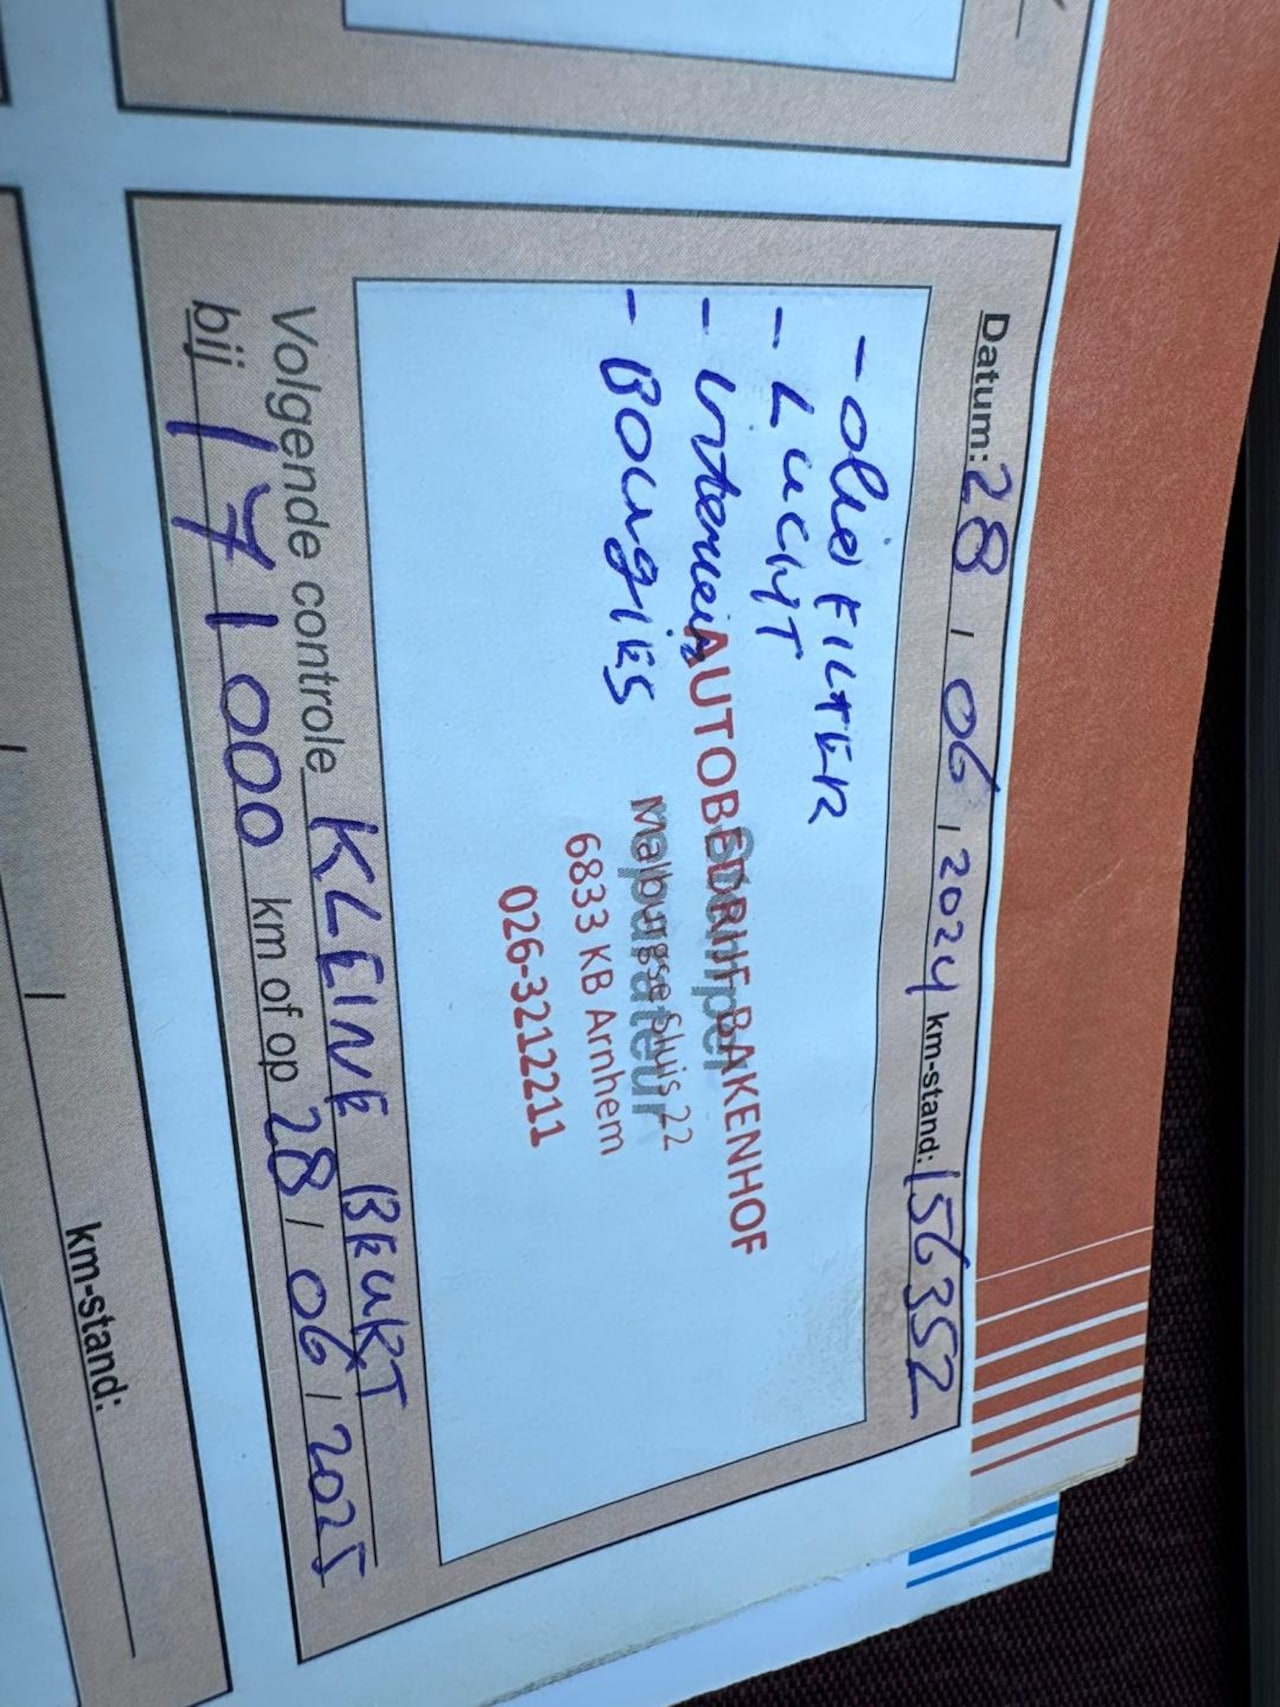 Datum: 28 / 06 / 2024 km-stand: 156352
- olie FILTER
- LUCHT
- interieur
- BOUGIES
AUTOBEDRIJF BAKENHOF
Malburgse Sluis 22
6833 KB Arnhem
026-3212211
Volgende controle KLEINE BEURT
bij 171000 km of op 28 / 06 / 2025
km-stand: